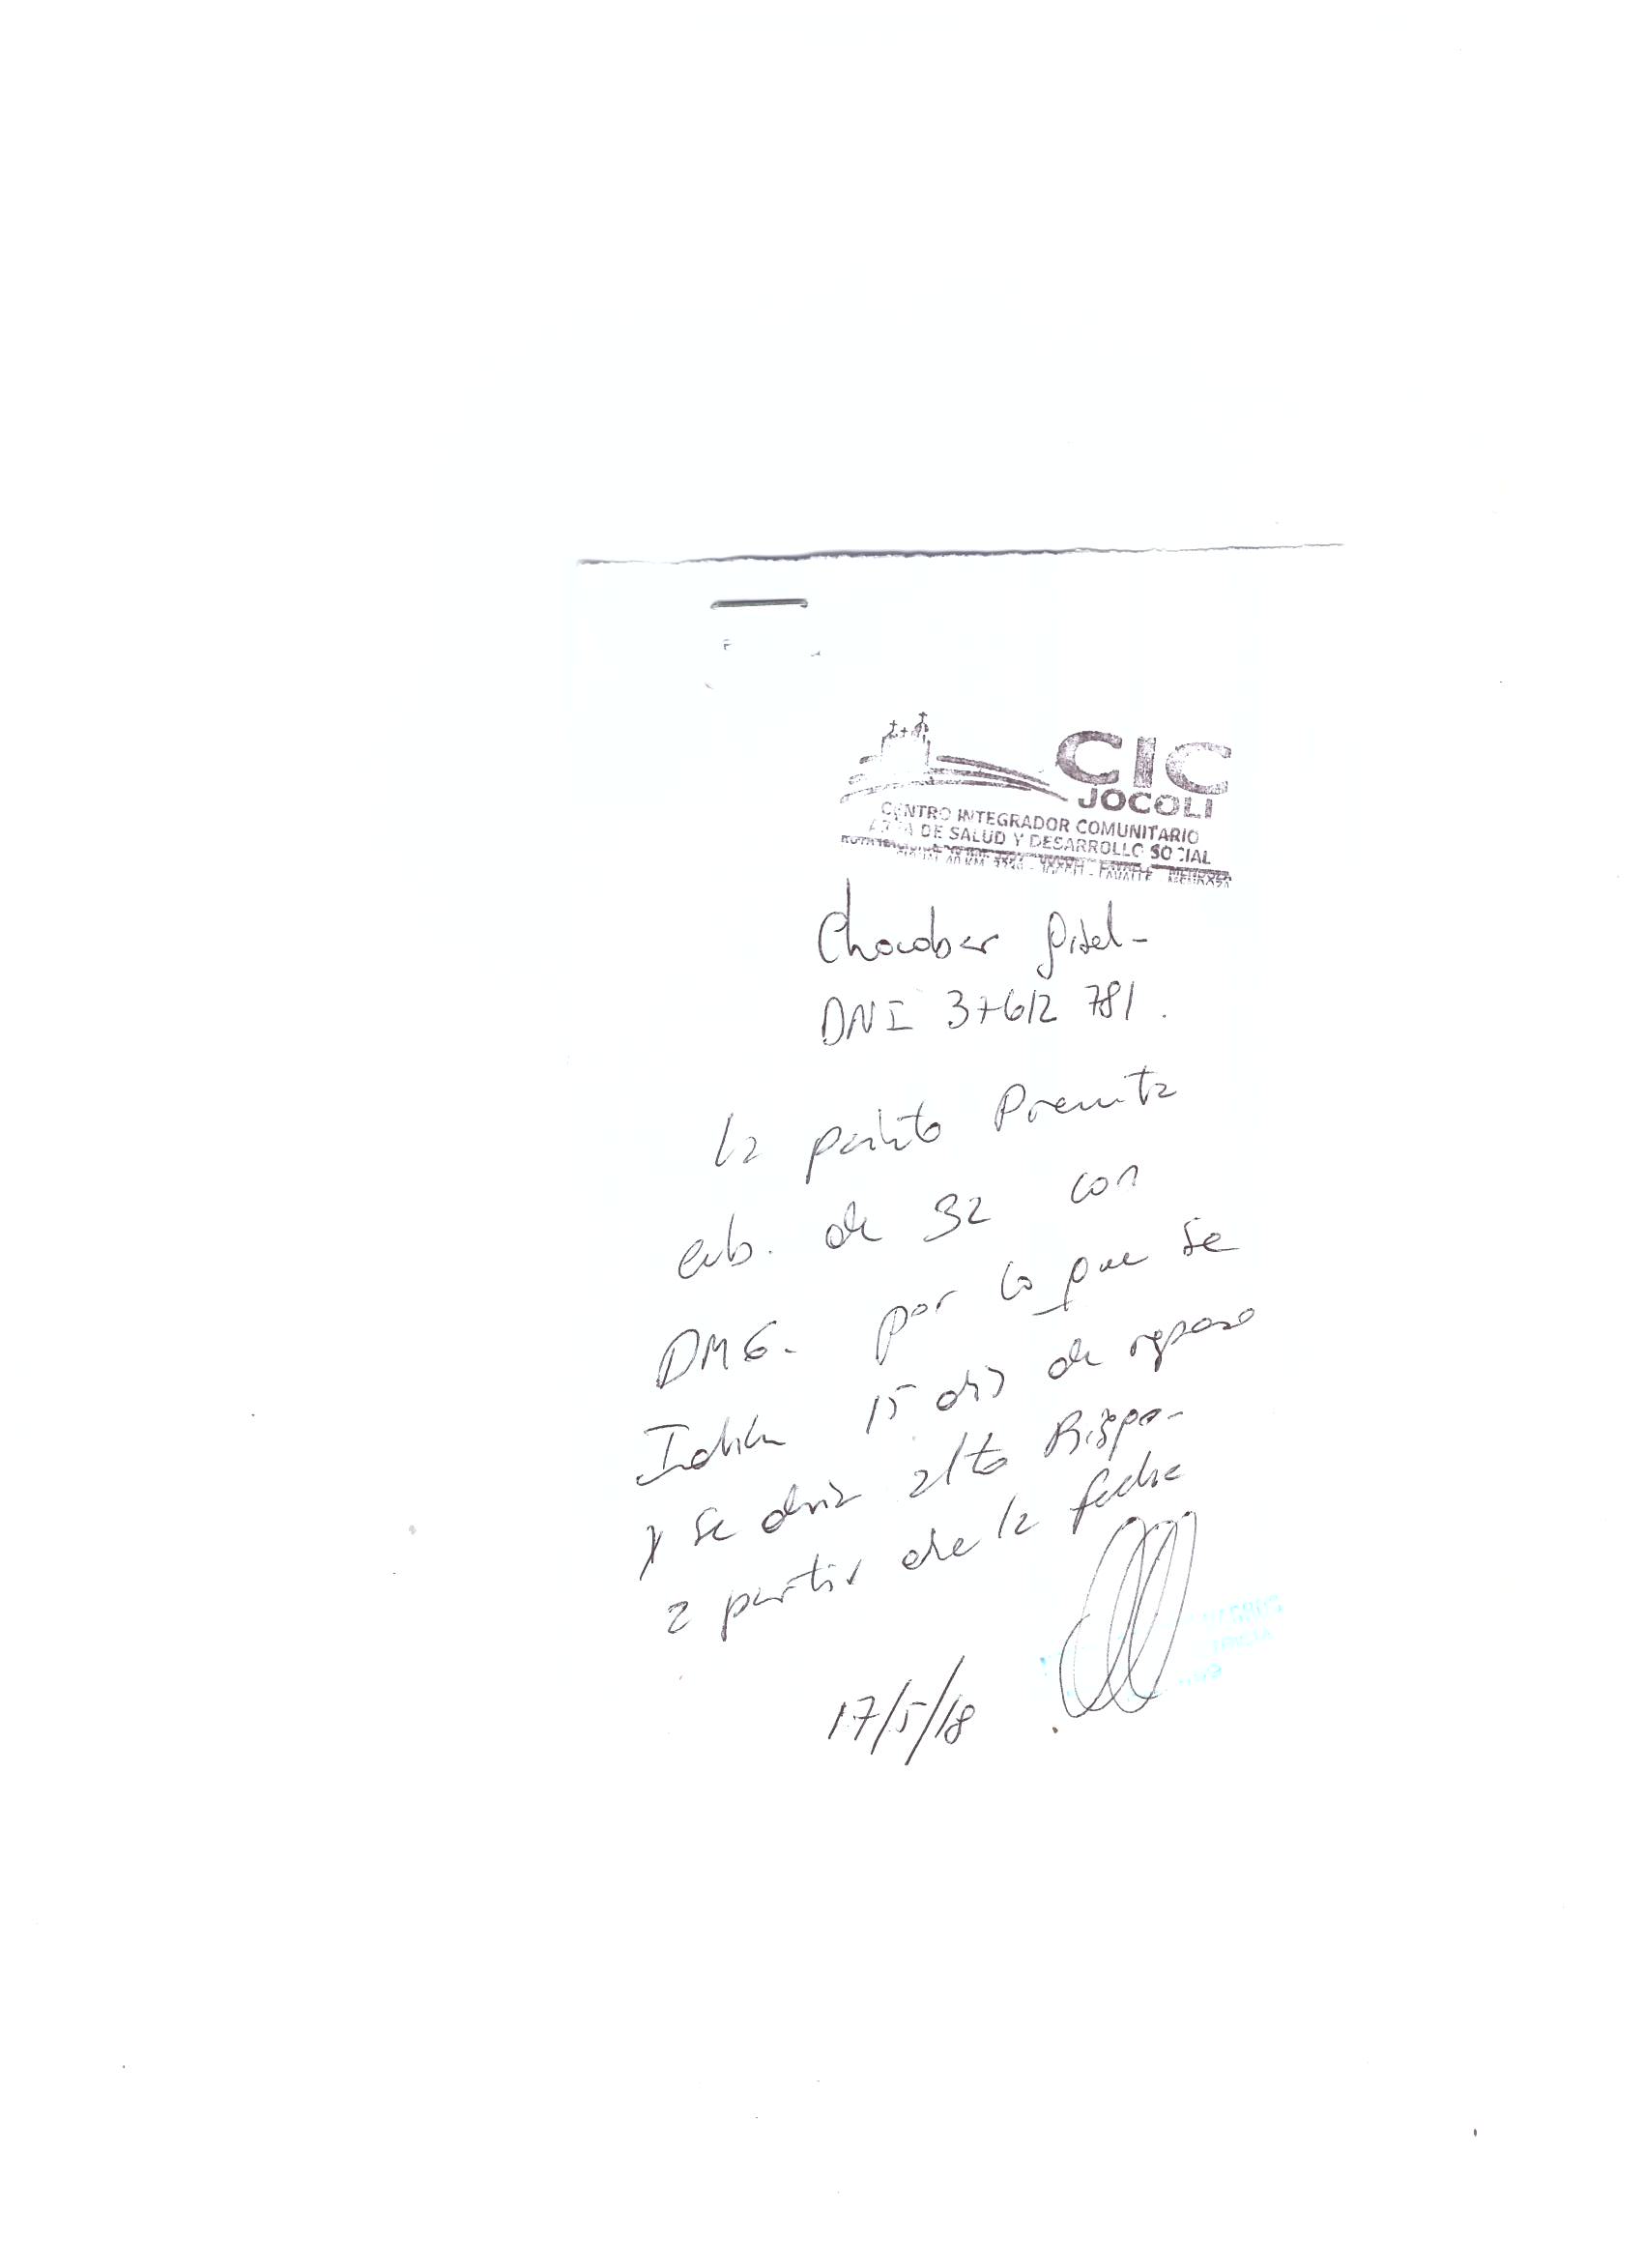 CIC
JOCOLI
CENTRO INTEGRADOR COMUNITARIO
AREA DE SALUD Y DESARROLLO SOCIAL
Chocobar Gisel-
DNI 37612 781.
la paciente Presenta
emb. de 32 con
DMG. por lo que se
Indica 15 días de reposo
y se deriva alto Riesgo-
a partir de la fecha
17/5/18